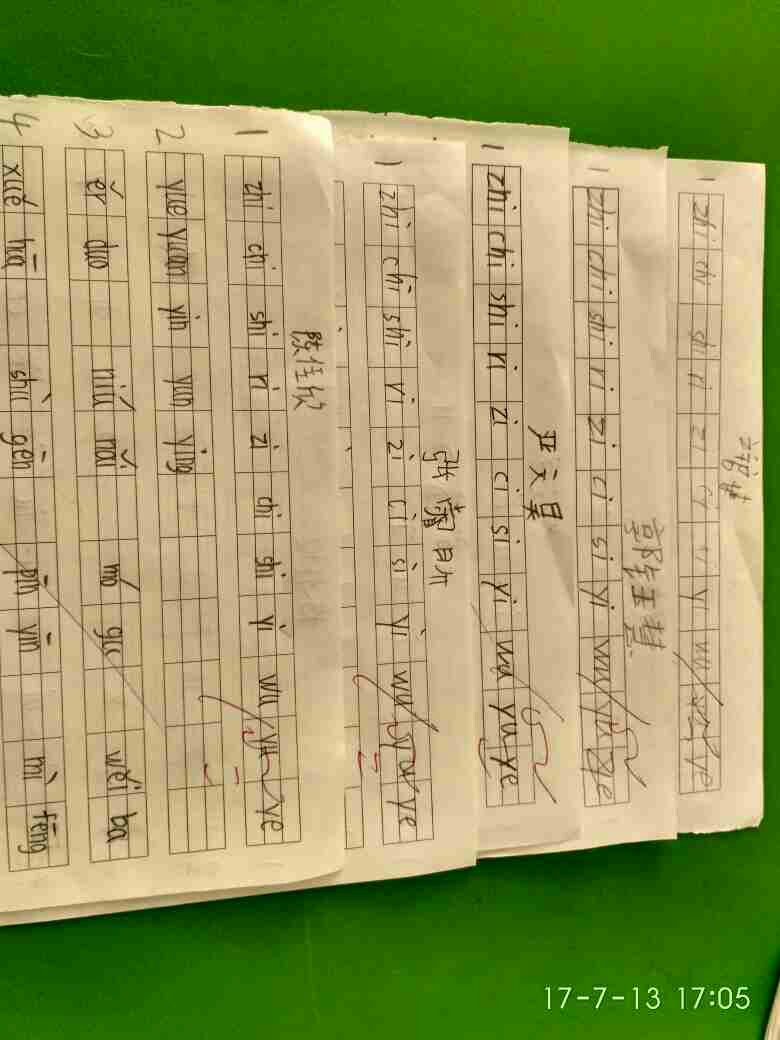 1 zhi chi shi ri zi chi shi yi wu yu ye
2 yue yuan yin yun ying
3 ěr duo niú nǎi mó gū wěi ba
4 xuě huā shù gēn pīn yīn mì fēng
1 zhi chi shi ri zi ci si yi wu yu ye
1 zhi chi shi ri zi ci si yi wu yu ye
文昊
1 zhi chi shi ri zi ci si yi wu yu ye
1 zhi chi shi ri zi ci si yi wu yu ye
17-7-13 17:05